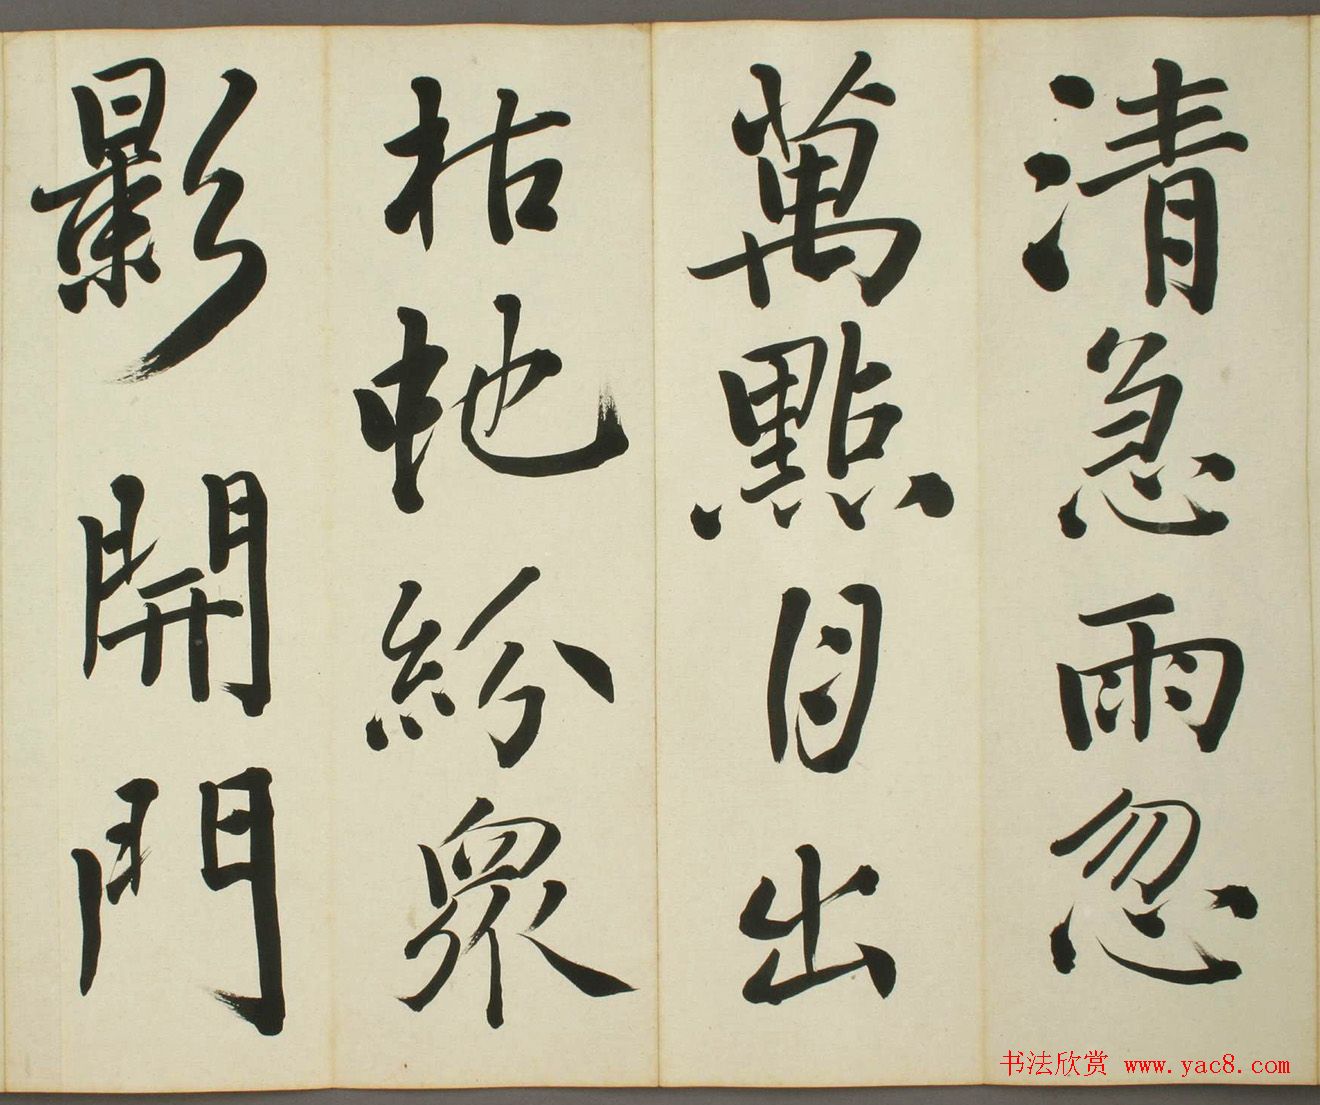 清急雨忽
萬點月出
枯虵紛眾
影開門
书法欣赏 www.yac8.com